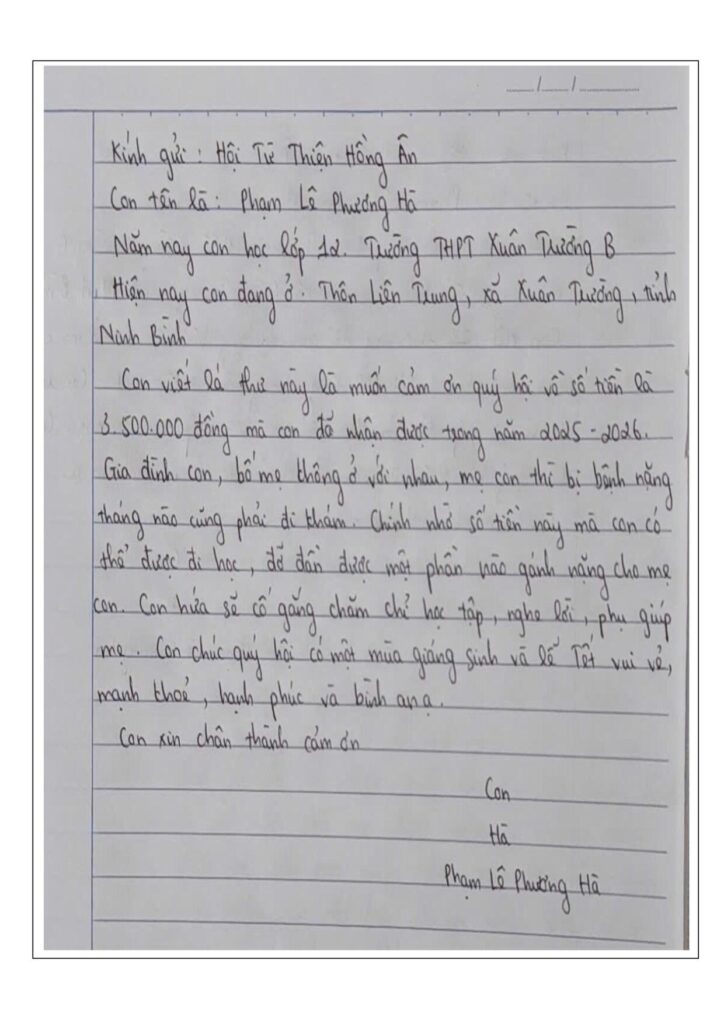 __/__/____
Kính gửi : Hội Từ Thiện Hồng Ân
Con tên là : Phạm Lê Phương Hà
Năm nay con học lớp 12. Trường THPT Xuân Trường B
Hiện nay con đang ở : Thôn Liên Trung, xã Xuân Trường, tỉnh
Ninh Bình
Con viết lá thư này là muốn cảm ơn quý hội về số tiền là
3.500.000 đồng mà con đã nhận được trong năm 2025-2026.
Gia đình con, bố mẹ không ở với nhau, mẹ con thì bị bệnh nặng
tháng nào cũng phải đi khám. Chính nhờ số tiền này mà con có
thể được đi học, đỡ đần được một phần nào gánh nặng cho mẹ
con. Con hứa sẽ cố gắng chăm chỉ học tập, nghe lời, phụ giúp
mẹ. Con chúc quý hội có một mùa giáng sinh và lễ Tết vui vẻ,
mạnh khoẻ, hạnh phúc và bình an ạ.
Con xin chân thành cảm ơn
Con
Hà
Phạm Lê Phương Hà